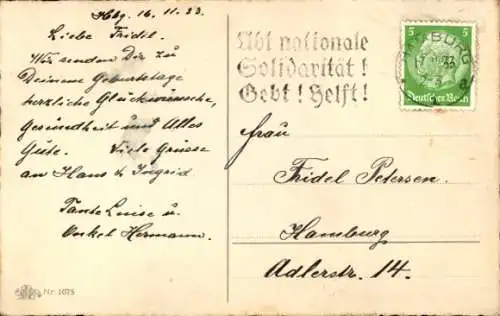 Hbg. 16.11.33
Liebe Fridel.
Wir senden Dir zu
Deinem Geburtstage
herzliche Glückwünsche,
Gesundheit und Alles
Gute. Viele Grüsse
an Hans & Ingrid
Tante Luise u.
Onkel Hermann.
Nr. 1075
Übt nationale
Solidarität!
Gebt! Helft!
HAMBURG
5 5
Deutsches Reich
Frau
Fridel Petersen.
Hamburg
Adlerstr. 14.